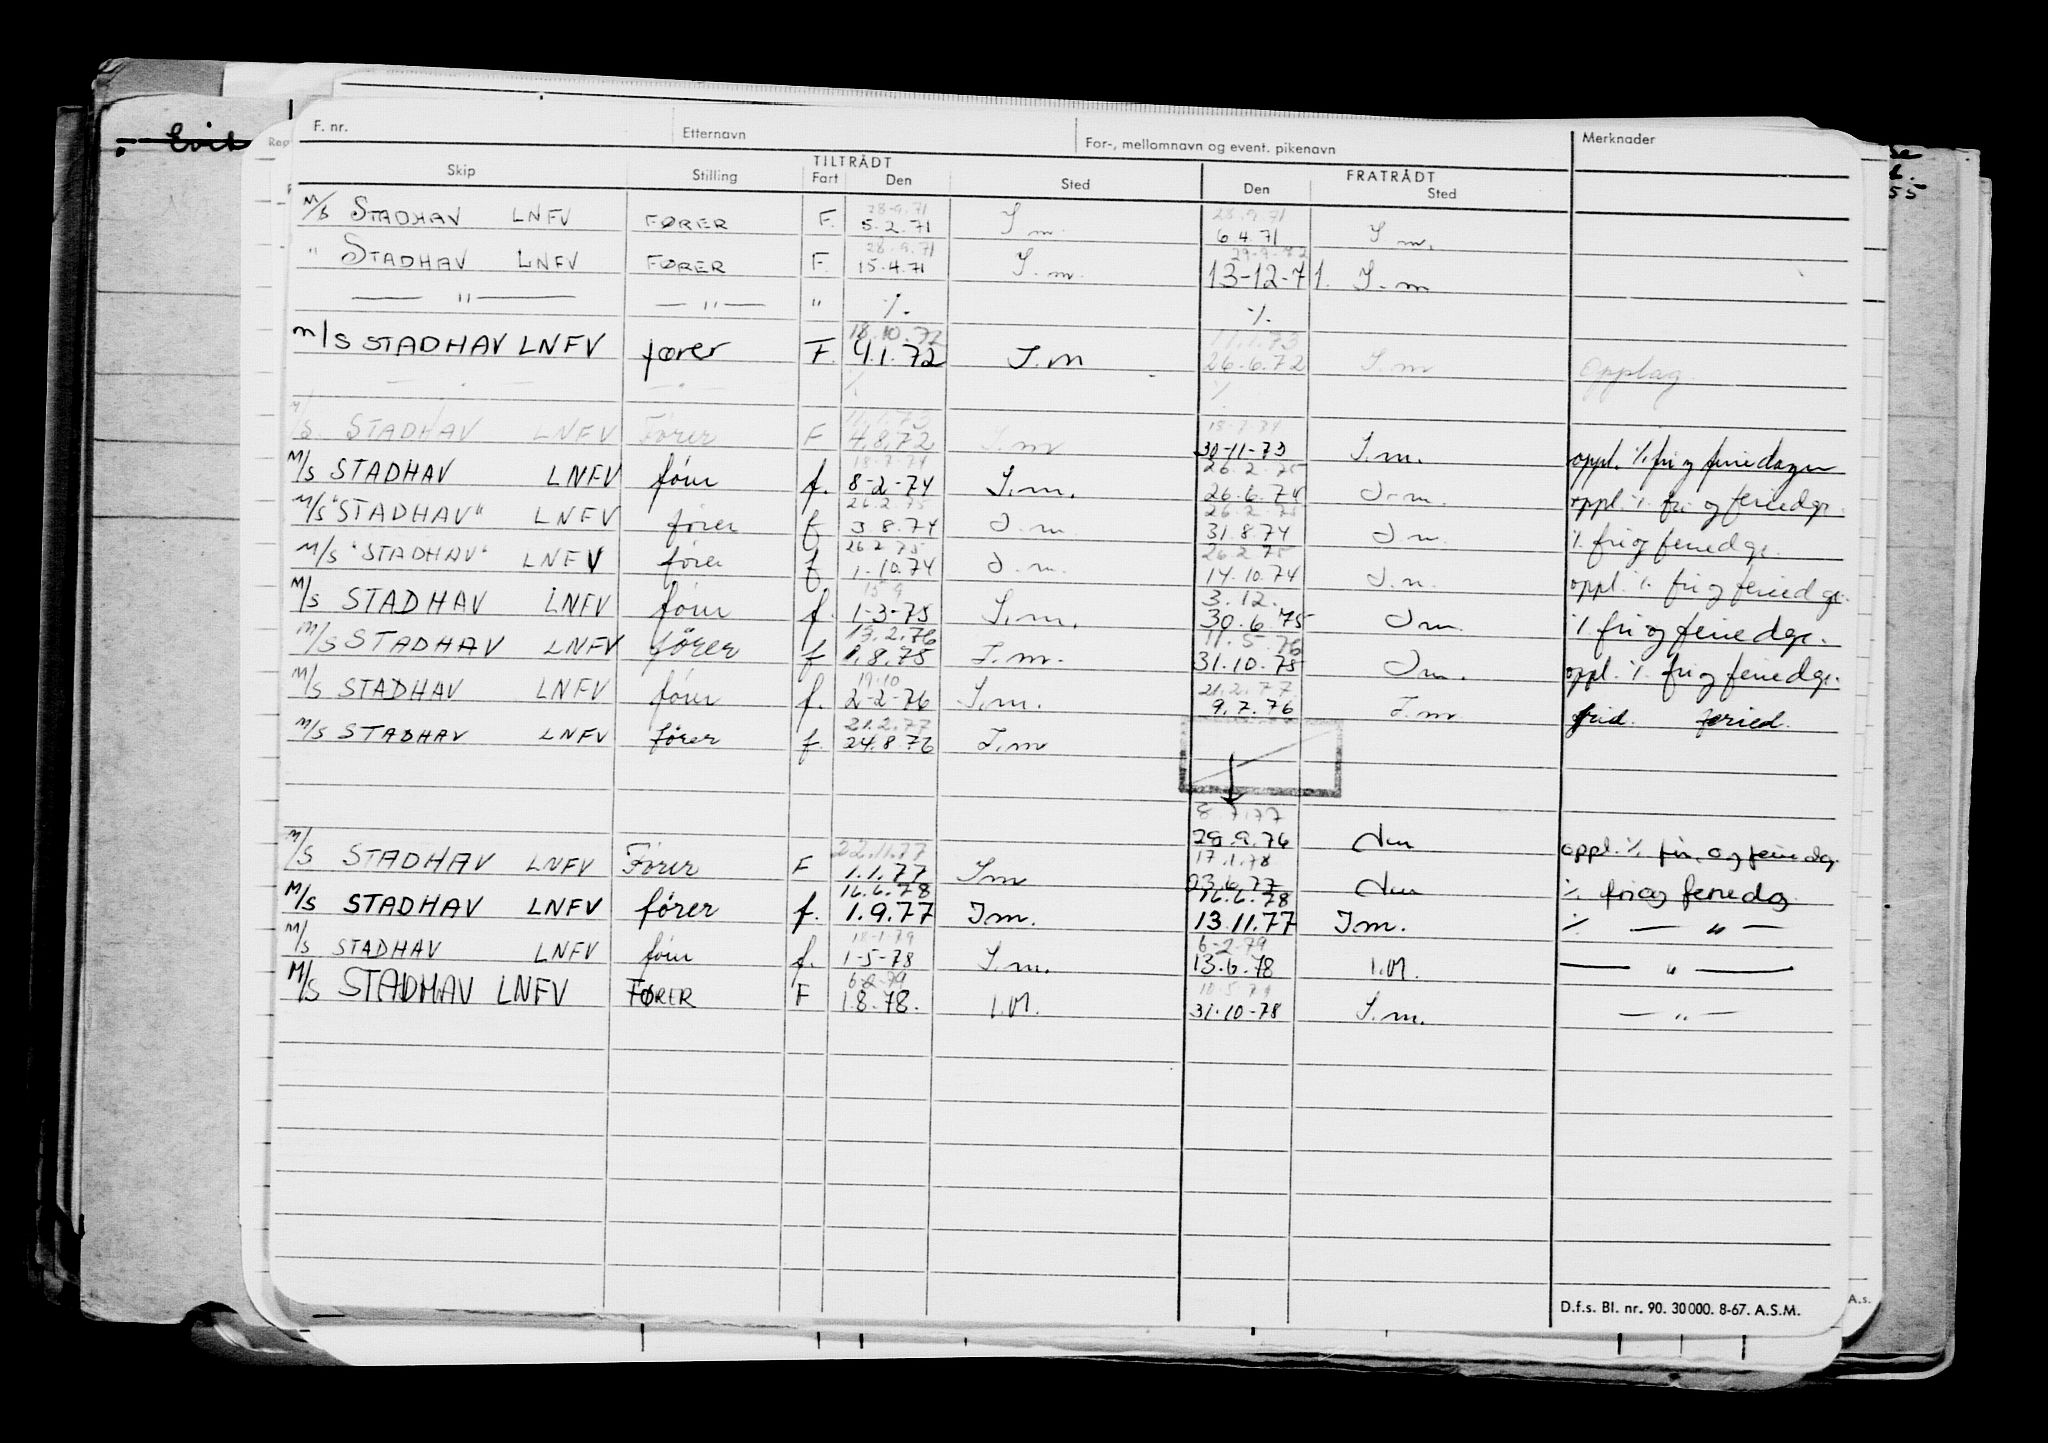 F. nr. Etternavn For-, mellomnavn og event. pikenavn Merknader
TILTRÅDT FRATRÅDT
Skip Stilling Fart Den Sted Den Sted
28-9.71 28.9.71
M/S STADHAV LNFV FØRER F. 5.2.71 I m. 6 4.71 I m.
28.9.71 29.9.72
" STADHAV LNFV FØRER F. 15.4.71 I.m. 13-12-71. I.m
— " — — " — " ·/. ·/.
18.10.72 11.1.73
M/S STADHAV LNFV fører F. 4.1.72 I.m 26.6.72 I.m Opplag
M/S STADHAV LNFV Fører F 4.8.72 I.m 30-11-73 I.m. oppl. ·/. fri og feriedager
18-7-74 26.2.75
M/S STADHAV LNFV fører f. 8-2-74 I.m. 26.6.74 I.m. oppl ·/. fri og feriedgr.
26.2.75 26.2.75
M/S "STADHAV" LNFV fører f 3.8.74 I.m. 31.8.74 I m. ·/. fri og feriedgr.
26.2.75 26.2.75
M/S "STADHAV" LNFV fører f 1.10.74 I.m. 14.10.74 I.m. oppl. ·/. fri og feriedgr.
15.9 3.12.
M/S STADHAV LNFV fører f. 1-3-75 I.m. 30.6.75 I m. ·/. fri og feriedgr.
13.2.76 11.5.76
M/S STADHAV LNFV fører f 1.8.75 I.m. 31.10.75 I m. oppl. ·/. fri og feriedgr.
19.10 21.2.77
M/S STADHAV LNFV fører f. 2-2-76 I.m. 9.7.76 I.m frid. feried.
21.2.77
M/S STADHAV LNFV fører f. 24.8.76 I.m
8.7.77
28.9.76 I m oppl. ·/. fri, og feriedg.
22.11.77 17.1.78
M/S STADHAV LNFV Fører F 1.1.77 I m 23.6.77 I m ·/. fri og feriedg.
16.6.78 16.6.78
M/S STADHAV LNFV fører f. 1.9.77 I m. 13.11.77 I m. ·/. — " —
18-1-79 6-2-79
M/S STADHAV LNFV fører f. 1-5-78 I.m. 13.6.78 I.M. — " —
6-2-79 10.5.79
M/S STADHAV LNFV FØRER F 1.8.78. I.M. 31.10-78 I.m. — " —
D.f.s. Bl. nr. 90. 30 000. 8-67. A.S.M.
A.s.